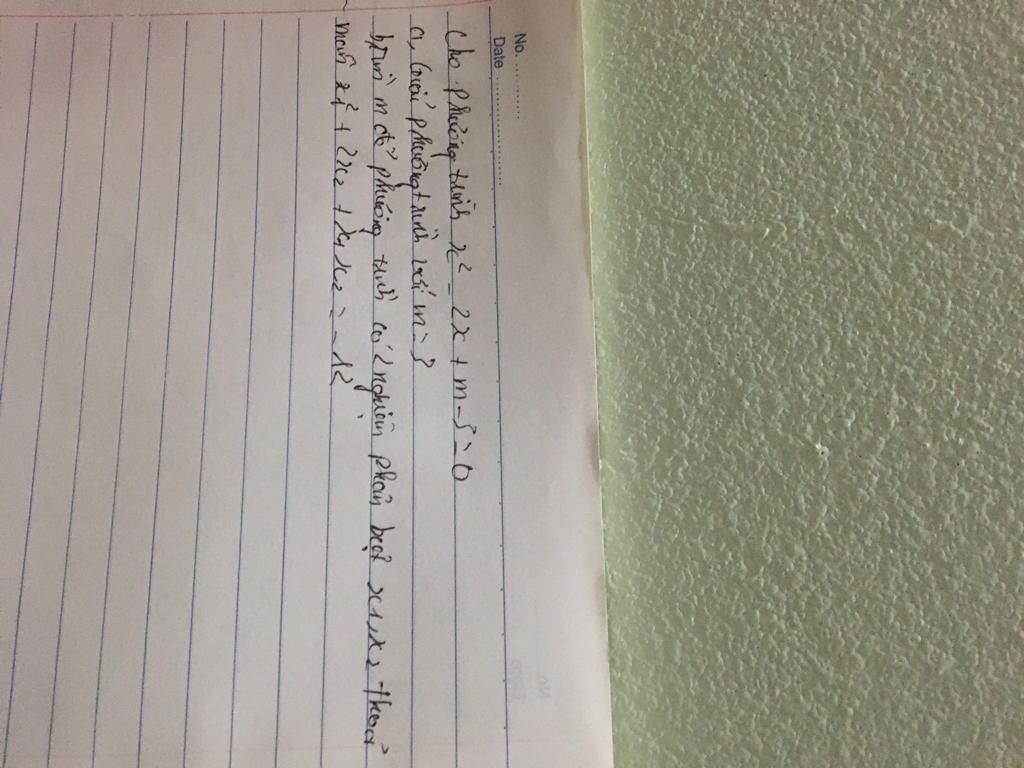 No. ...........
Date ......................
Cho phương trình x² - 2x + m - 5 = 0
a, Giải phương trình với m =
b, Tìm m để phương trình có 2 nghiệm phân biệt x1, x2 thoả
mãn x₁² + 2x₂ + x₁x₂ = - 12